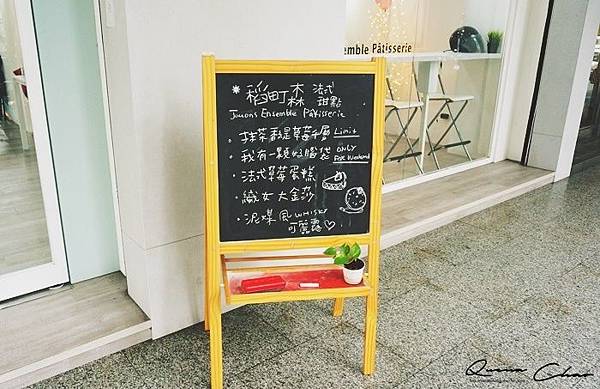 Ensemble Pâtisserie
* 稻町森 法式甜點
Jouons Ensemble Pâtisserie
・抹茶我是草莓千層 Limit
・我有一顆好腦袋 ONLY For Weekend
・法式草莓蛋糕
・織女大金莎
・泥煤風 WHISKY
可麗露♡
Queena Chao